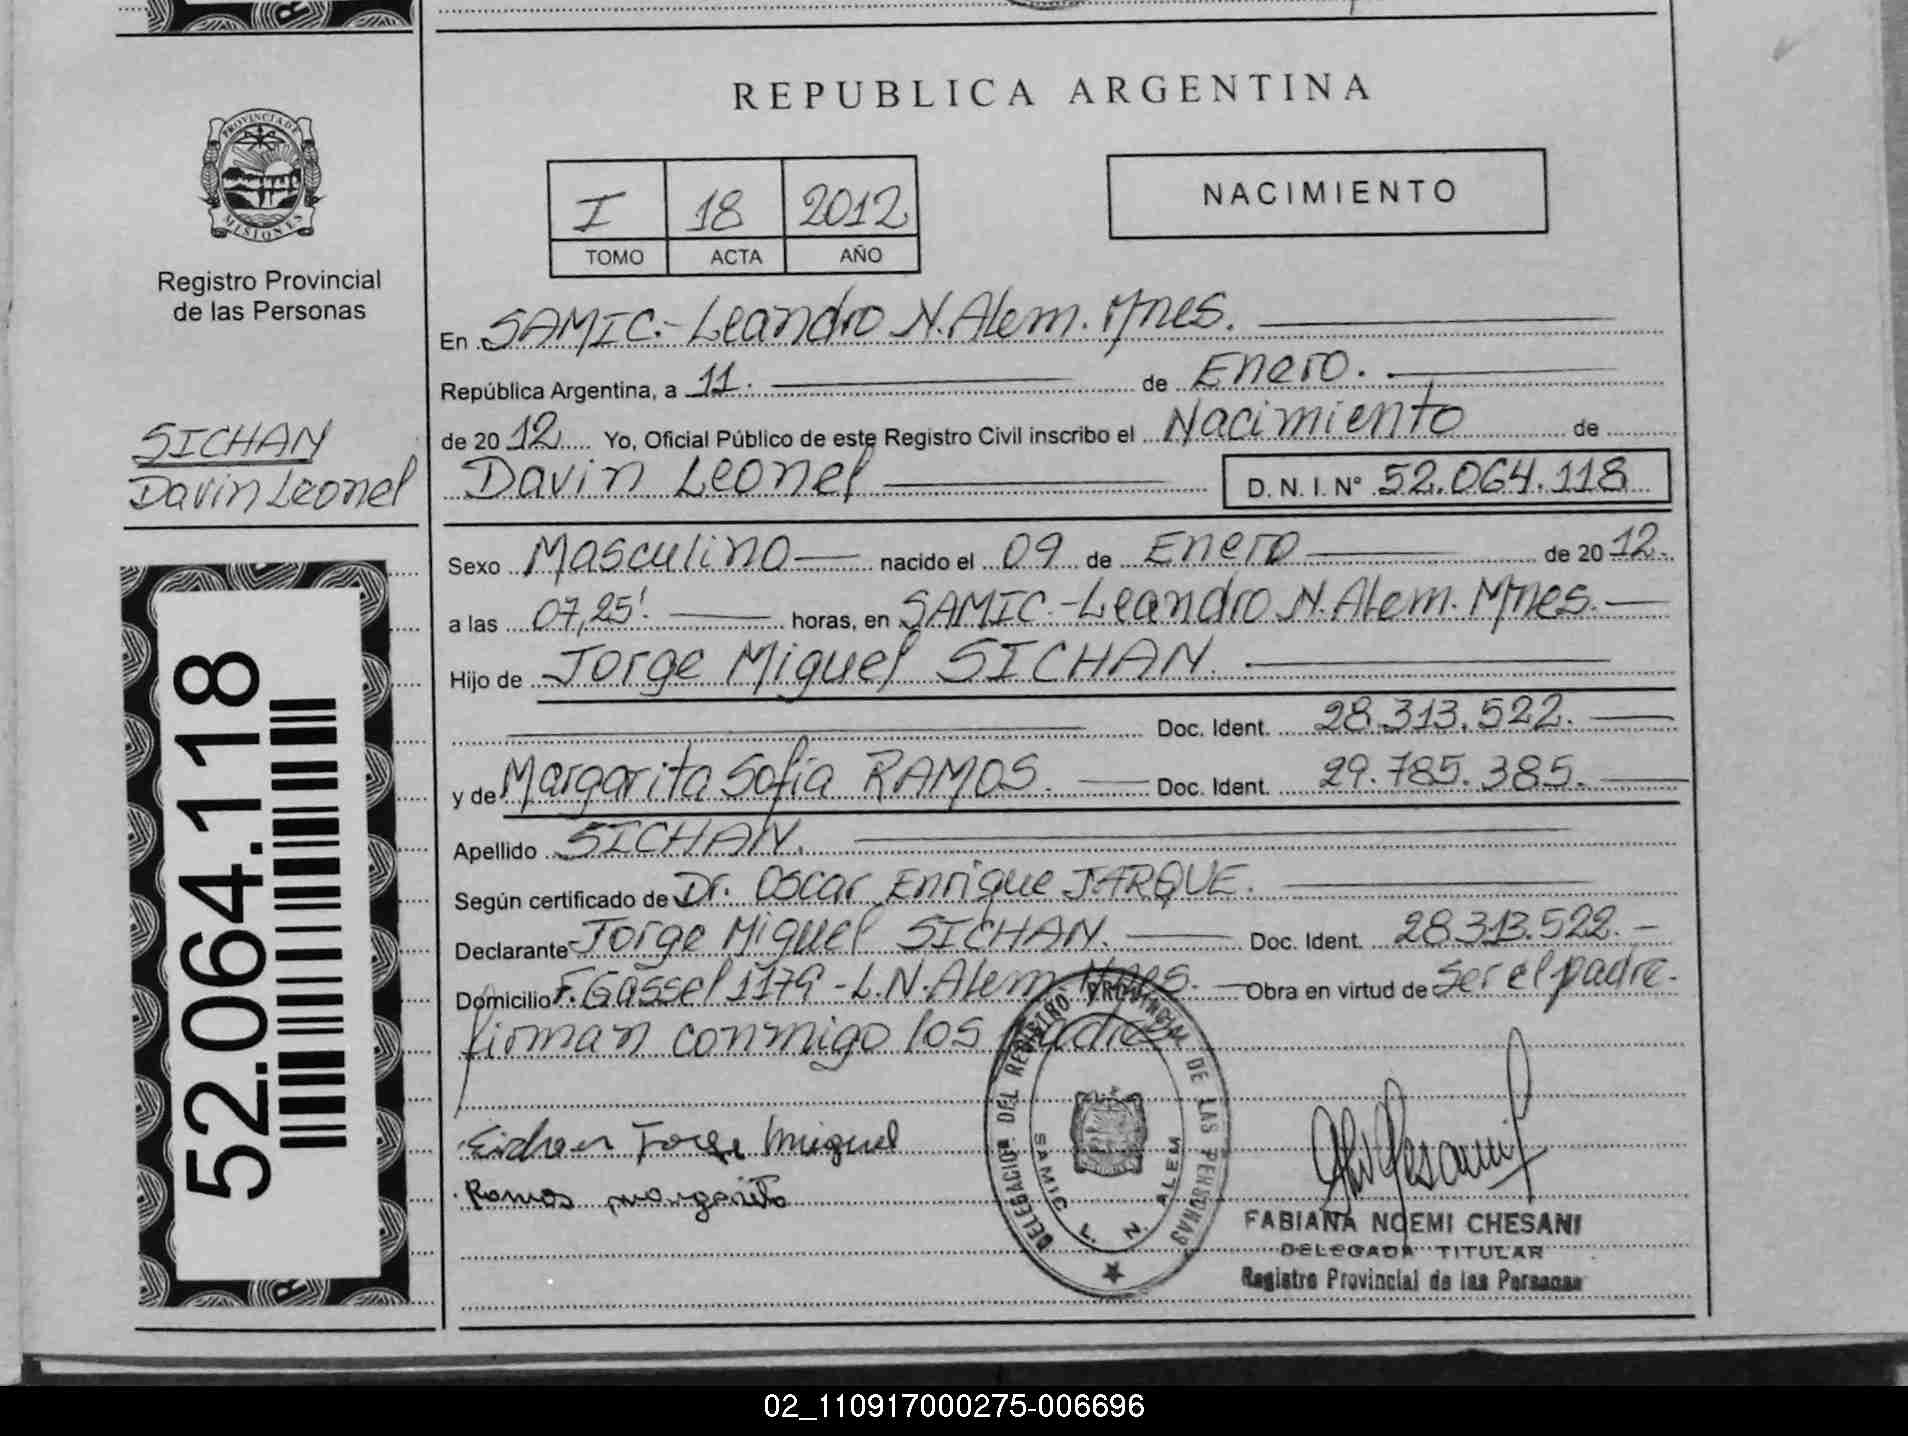 REPUBLICA ARGENTINA
PROVINCIA DE MISIONES
Registro Provincial
de las Personas
I 18 2012
TOMO ACTA AÑO
NACIMIENTO
En SAMIC.- Leandro N. Alem. Mnes.
República Argentina, a 11. de Enero.
de 20 12 Yo, Oficial Público de este Registro Civil inscribo el Nacimiento de
SICHAN
Davin Leonel
Davin Leonel D. N. I. N° 52.064.118
Sexo Masculino nacido el 09 de Enero de 20 12.
a las 07,25'. horas, en SAMIC.-Leandro N. Alem. Mnes.
Hijo de Jorge Miguel SICHAN.
Doc. Ident. 28.313.522.
y de Margarita Sofia RAMOS. Doc. Ident. 29.785.385.
Apellido SICHAN.
Según certificado de Dr. Oscar Enrique JARQUE.
Declarante Jorge Miguel SICHAN. Doc. Ident. 28.313.522.-
Domicilio F. Gassel 1179 - L.N. Alem Mnes. Obra en virtud de Ser el padre.
firman conmigo los padres
52.064.118
Sichan Jorge Miguel
Ramos margarita
DELEGACION DEL REGISTRO PROVINCIAL DE LAS PERSONAS
SAMIC L. N. ALEM
FABIANA NOEMI CHESANI
DELEGADA TITULAR
Registro Provincial de las Personas
02_110917000275-006696